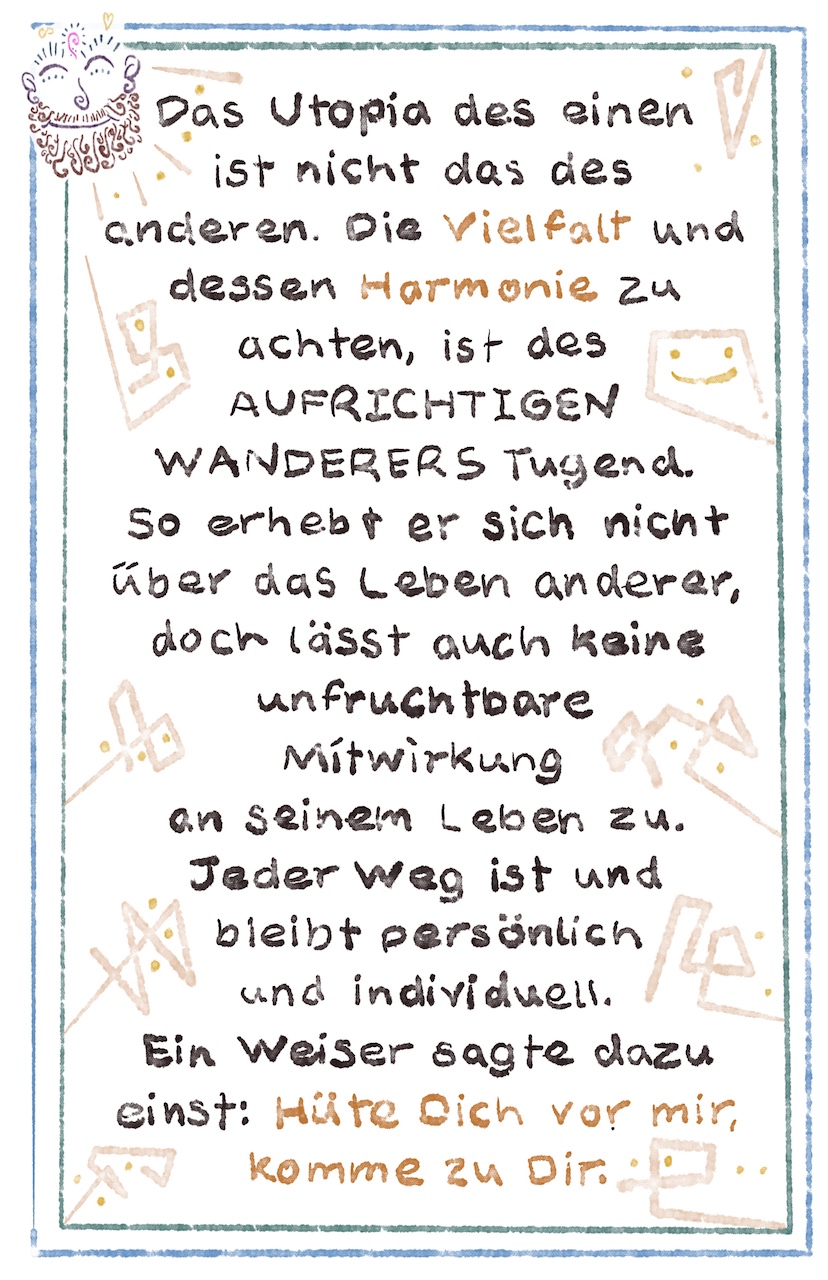 Das Utopia des einen
ist nicht das des
anderen. Die Vielfalt und
dessen Harmonie zu
achten, ist des
AUFRICHTIGEN
WANDERERS Tugend.
So erhebt er sich nicht
über das Leben anderer,
doch lässt auch keine
unfruchtbare
Mitwirkung
an seinem Leben zu.
Jeder Weg ist und
bleibt persönlich
und individuell.
Ein Weiser sagte dazu
einst: Hüte Dich vor mir,
komme zu Dir.